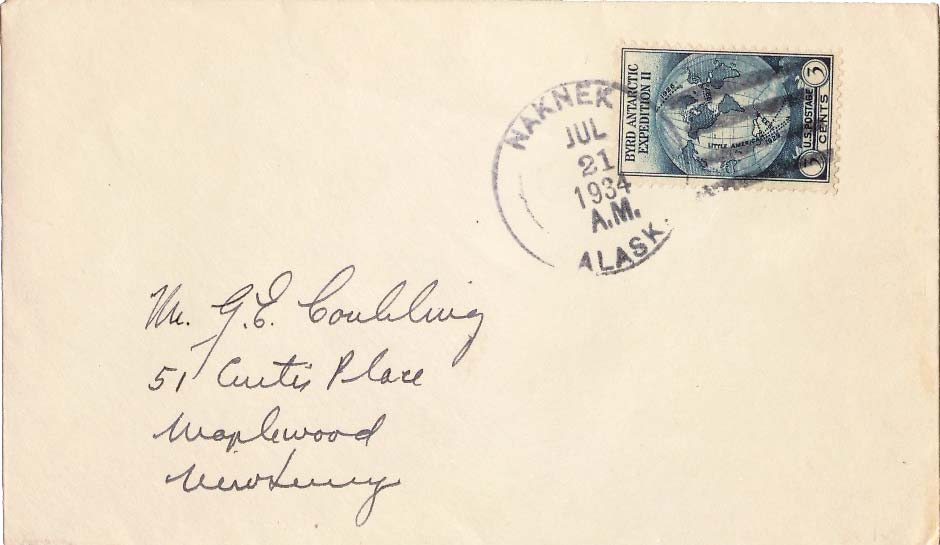 BYRD ANTARCTIC
EXPEDITION II
LITTLE AMERICA
U.S. POSTAGE
3 CENTS 3
NAKNEK
JUL
21
1934
A.M.
ALASK
Mr. G. E. Conkling
51 Curtis Place
Maplewood
New Jersey